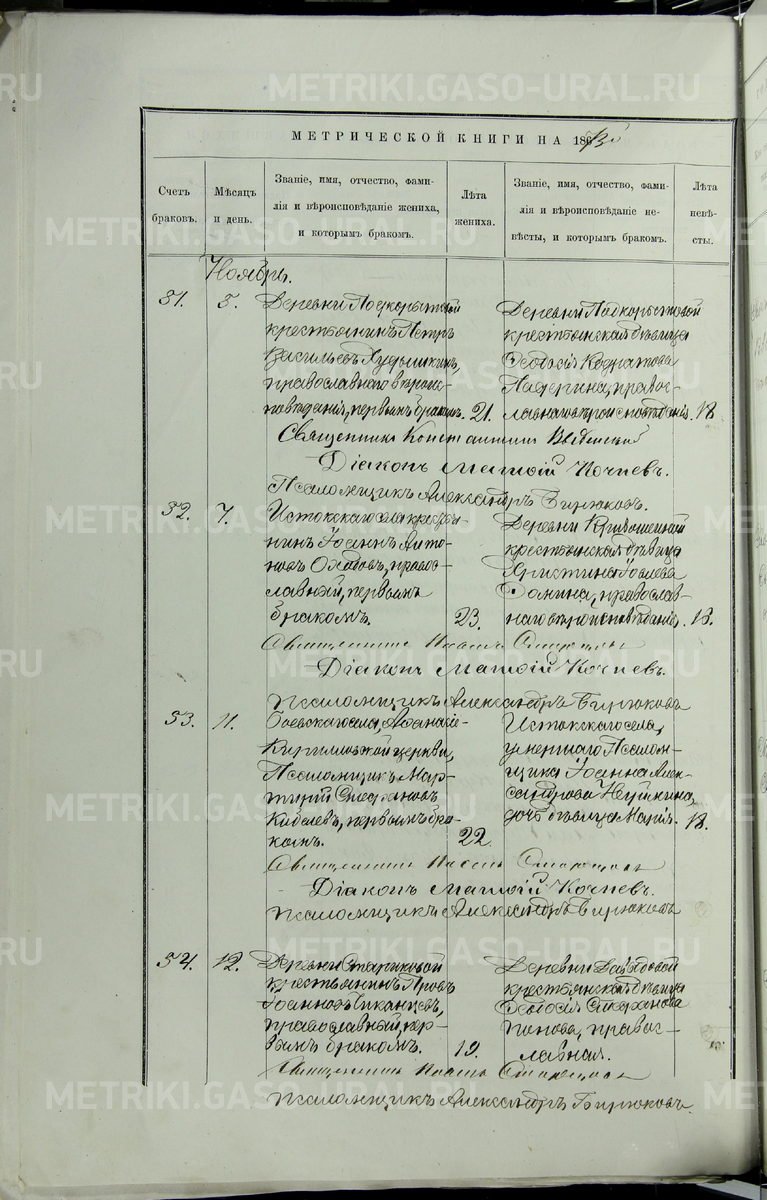 METRIKI.GASO-URAL.RU
МЕТРИЧЕСКОЙ КНИГИ НА 186
Счетъ браковъ.
Мѣсяцъ и день.
Званіе, имя, отчество, фами-
лія и вѣроисповѣданіе жениха,
и которымъ бракомъ.
Лѣта жениха.
Званіе, имя, отчество, фами-
лія и вѣроисповѣданіе не-
вѣсты, и которымъ бракомъ.
Лѣта невѣ-
сты.
Ноябрь.
51. 5.
Деревни Подкорытовой
крестьянинъ Петръ
Васильевъ
православнаго вѣроис-
повѣданія, первымъ бракомъ. 21.
Деревни Подкорытовой
крестьянская дѣвица
Ѳеодосія Кодратова
правос-
лавнаго вѣроисповѣданія. 18
Священникъ Константинъ
Діаконъ Матѳій Кочневъ.
Псаломщикъ Александръ Бирюковъ.
52. 7.
Истокскаго села крестья-
нинъ Іоаннъ Анто-
новъ правос-
лавный, первымъ
бракомъ. 23.
Деревни
крестьянская дѣвица
Христина
Ѳомина, православ-
наго вѣроисповѣданія. 18.
Священникъ
Діаконъ Матѳій Кочневъ.
Псаломщикъ Александръ Бирюковъ
53. 11.
Боевскаго села, Аѳанасіе-
Кирилловской церкви,
Псаломщикъ Мар-
тирій Стефановъ
первымъ бра-
комъ. 22
Истокскаго села,
умершаго Псалом-
щика Іоанна Алек-
сандрова
дочь дѣвица Марія. 18.
Священникъ
Діаконъ Матѳій Кочневъ.
Псаломщикъ Александръ Бирюковъ
54. 12.
Деревни Стариковой
крестьянинъ
Іоанновъ
православный, пер-
вымъ бракомъ. 19.
Деревни
крестьянская дѣвица
Ѳеодосія Стефанова
Попова, правос-
лавная.
Священникъ
Псаломщикъ Александръ Бирюковъ.